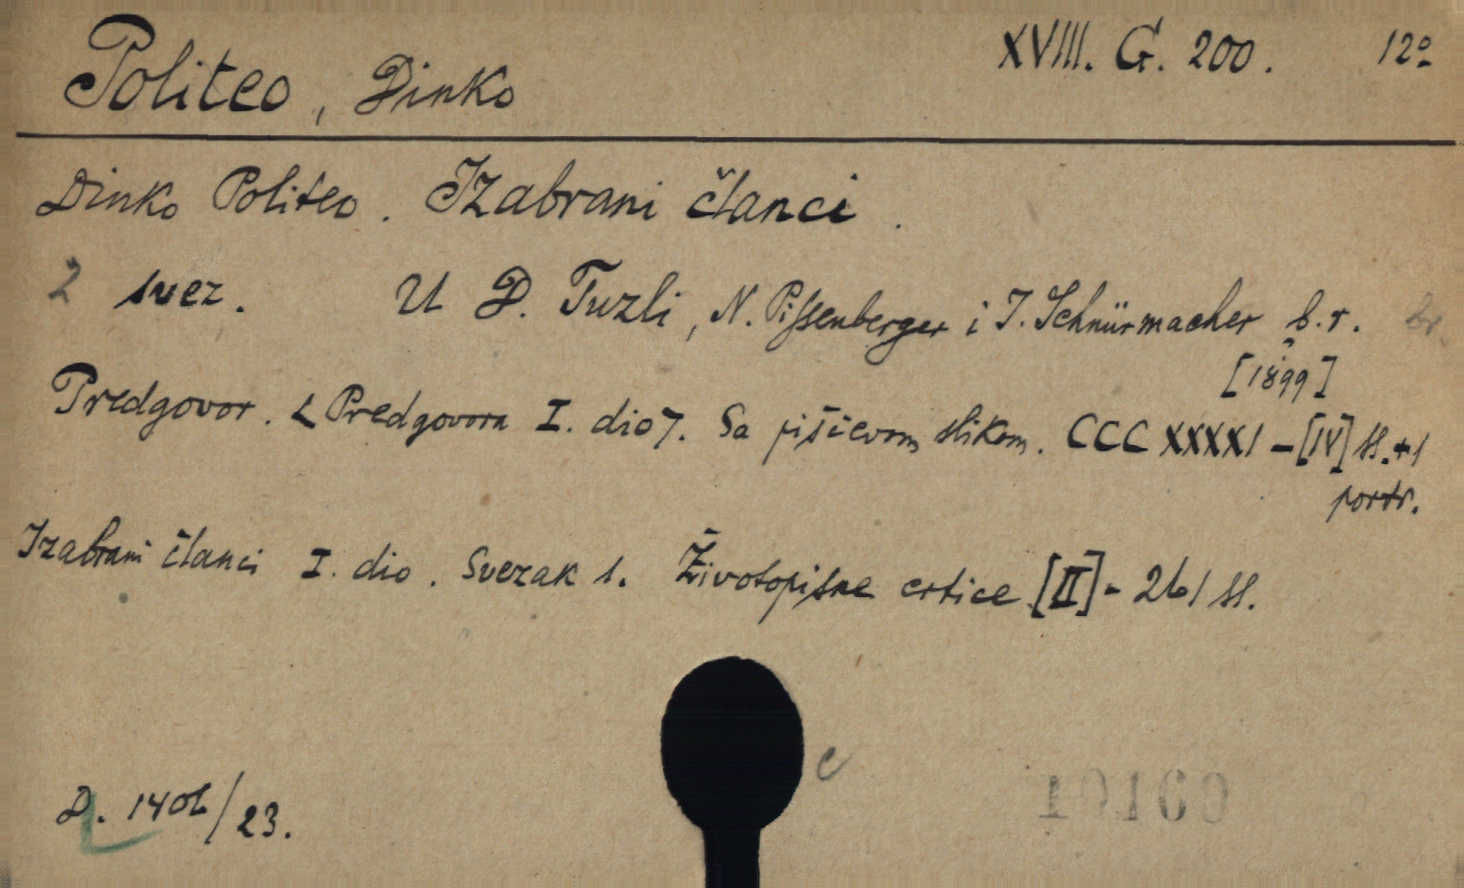 Politeo, Dinko XVIII. G. 200. 12º
Dinko Politeo. Izabrani članci.
2 svez. U D. Tuzli, N. Pissenberger i J. Schnürmacher b. r. br.
[1899]
Predgovor. < Predgovora I. dio 7. Sa piščevom slikom. CCCXXXXI - [IV] ss. + 1
portr.
Izabrani članci I. dio. Svezak 1. Životopisne crtice [II] - 261 ss.
c
10160
D. 1406/23.